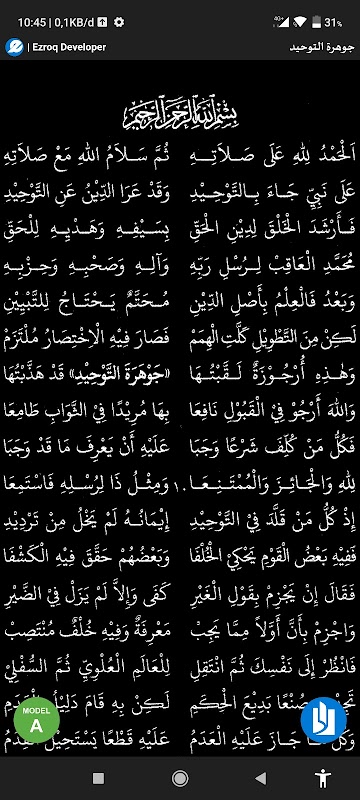 10:45 | 0,1KB/d
4G+
31%
| Ezroq Developer
جوهرة التوحيد
بِسْمِ اللهِ الرَّحْمَنِ الرَّحِيْمِ
اَلْحَمْدُ لِلهِ عَلَى صَلَاتِــهِ ثُمَّ سَلَامُ اللهِ مَعْ صَلَاتِهِ
عَلَى نَبِيٍّ جَاءَ بِــالتَّوْحِيْـدِ وَقَدْ عَرَا الدِّيْنُ عَنِ التَّوْحِيْدِ
فَـأَرْشَدَ الْخَلْقَ لِدِيْنِ الْحَقِّ بِسَـيْفِـهِ وَهَـدْيِـهِ لِلْحَقِّ
مُحَمَّدِ الْعَاقِبْ لِرُسْلِ رَبِّهِ وَآلِـهِ وَصَحْبِـهِ وَحِزْبِـهِ
وَبَعْدُ فَالْعِلْمُ بِأَصْلِ الدِّيْنِ مُـحَتَّمٌ يَـحْتَاجُ لِلتَّبْيِيْنِ
لَكِنْ مِنَ التَّطْوِيْلِ كَلَّتِ الْهِمَمْ فَصَارَ فِيْهِ الْاِخْتِصَارُ مُلْتَزَمْ
وَهٰذِهِ أُرْجُوْزَةٌ لَـقَّبْتُـهَـا «جَوْهَرَةَ التَّوْحِيْدِ» قَدْ هَذَّبْتُهَا
وَاللهَ أَرْجُوْ فِيْ الْقَبُوْلِ نَافِعَا بِهَا مُرِيْدًا فِيْ الثَّوَابِ طَامِعَا
فَكُلُّ مَنْ كُلِّفَ شَرْعًا وَجَبَا عَلَيْهِ أَنْ يَعْرِفَ مَا قَدْ وَجَبَا
لِلهِ وَالْجَـائِـزَ وَالْمُمْتَنِـعَـا ١٠ وَمِثْـلُ ذَا لِرُسْلِـهِ فَاسْتَمِعَا
إِذْ كُلُّ مَنْ قَلَّدَ فِيْ التَّوْحِيْدِ إِيْمَانُـهُ لَمْ يَخْلُ مِنْ تَرْدِيْدِ
فَفِيْهِ بَعْضُ الْقَوْمِ يَحْكِيْ الْخُلْفَا وَبَعْضُهُمْ حَقَّقَ فِيْهِ الْكَشْفَا
فَقَالَ إِنْ يَجْزِمْ بِقَوْلِ الْغَيْرِ كَفَى وَإِلَّا لَمْ يَزَلْ فِيْ الضَّيْرِ
وَاجْزِمْ بِأَنَّ أَوَّلًا مِمَّا يَجِبْ مَعْرِفَةٌ وَفِيْهِ خُلْفٌ مُنْتَصِبْ
فَانْظُرْ إِلَى نَفْسِكَ ثُمَّ انْتَقِلِ لِلْعَالَمِ الْعُلْوِيِّ ثُمَّ السُّفْلِيْ
تَجِدْ صُنْعًا بَدِيْعَ الْحِكَمِ لَكِنْ بِهِ قَامَ دَلِيْلُ الْعَدَمِ
وَكُلُّ مَا جَازَ عَلَيْهِ الْعَدَمُ عَلَيْهِ قَطْعًا يَسْتَحِيْلُ الْقِدَمُ
MODEL
A